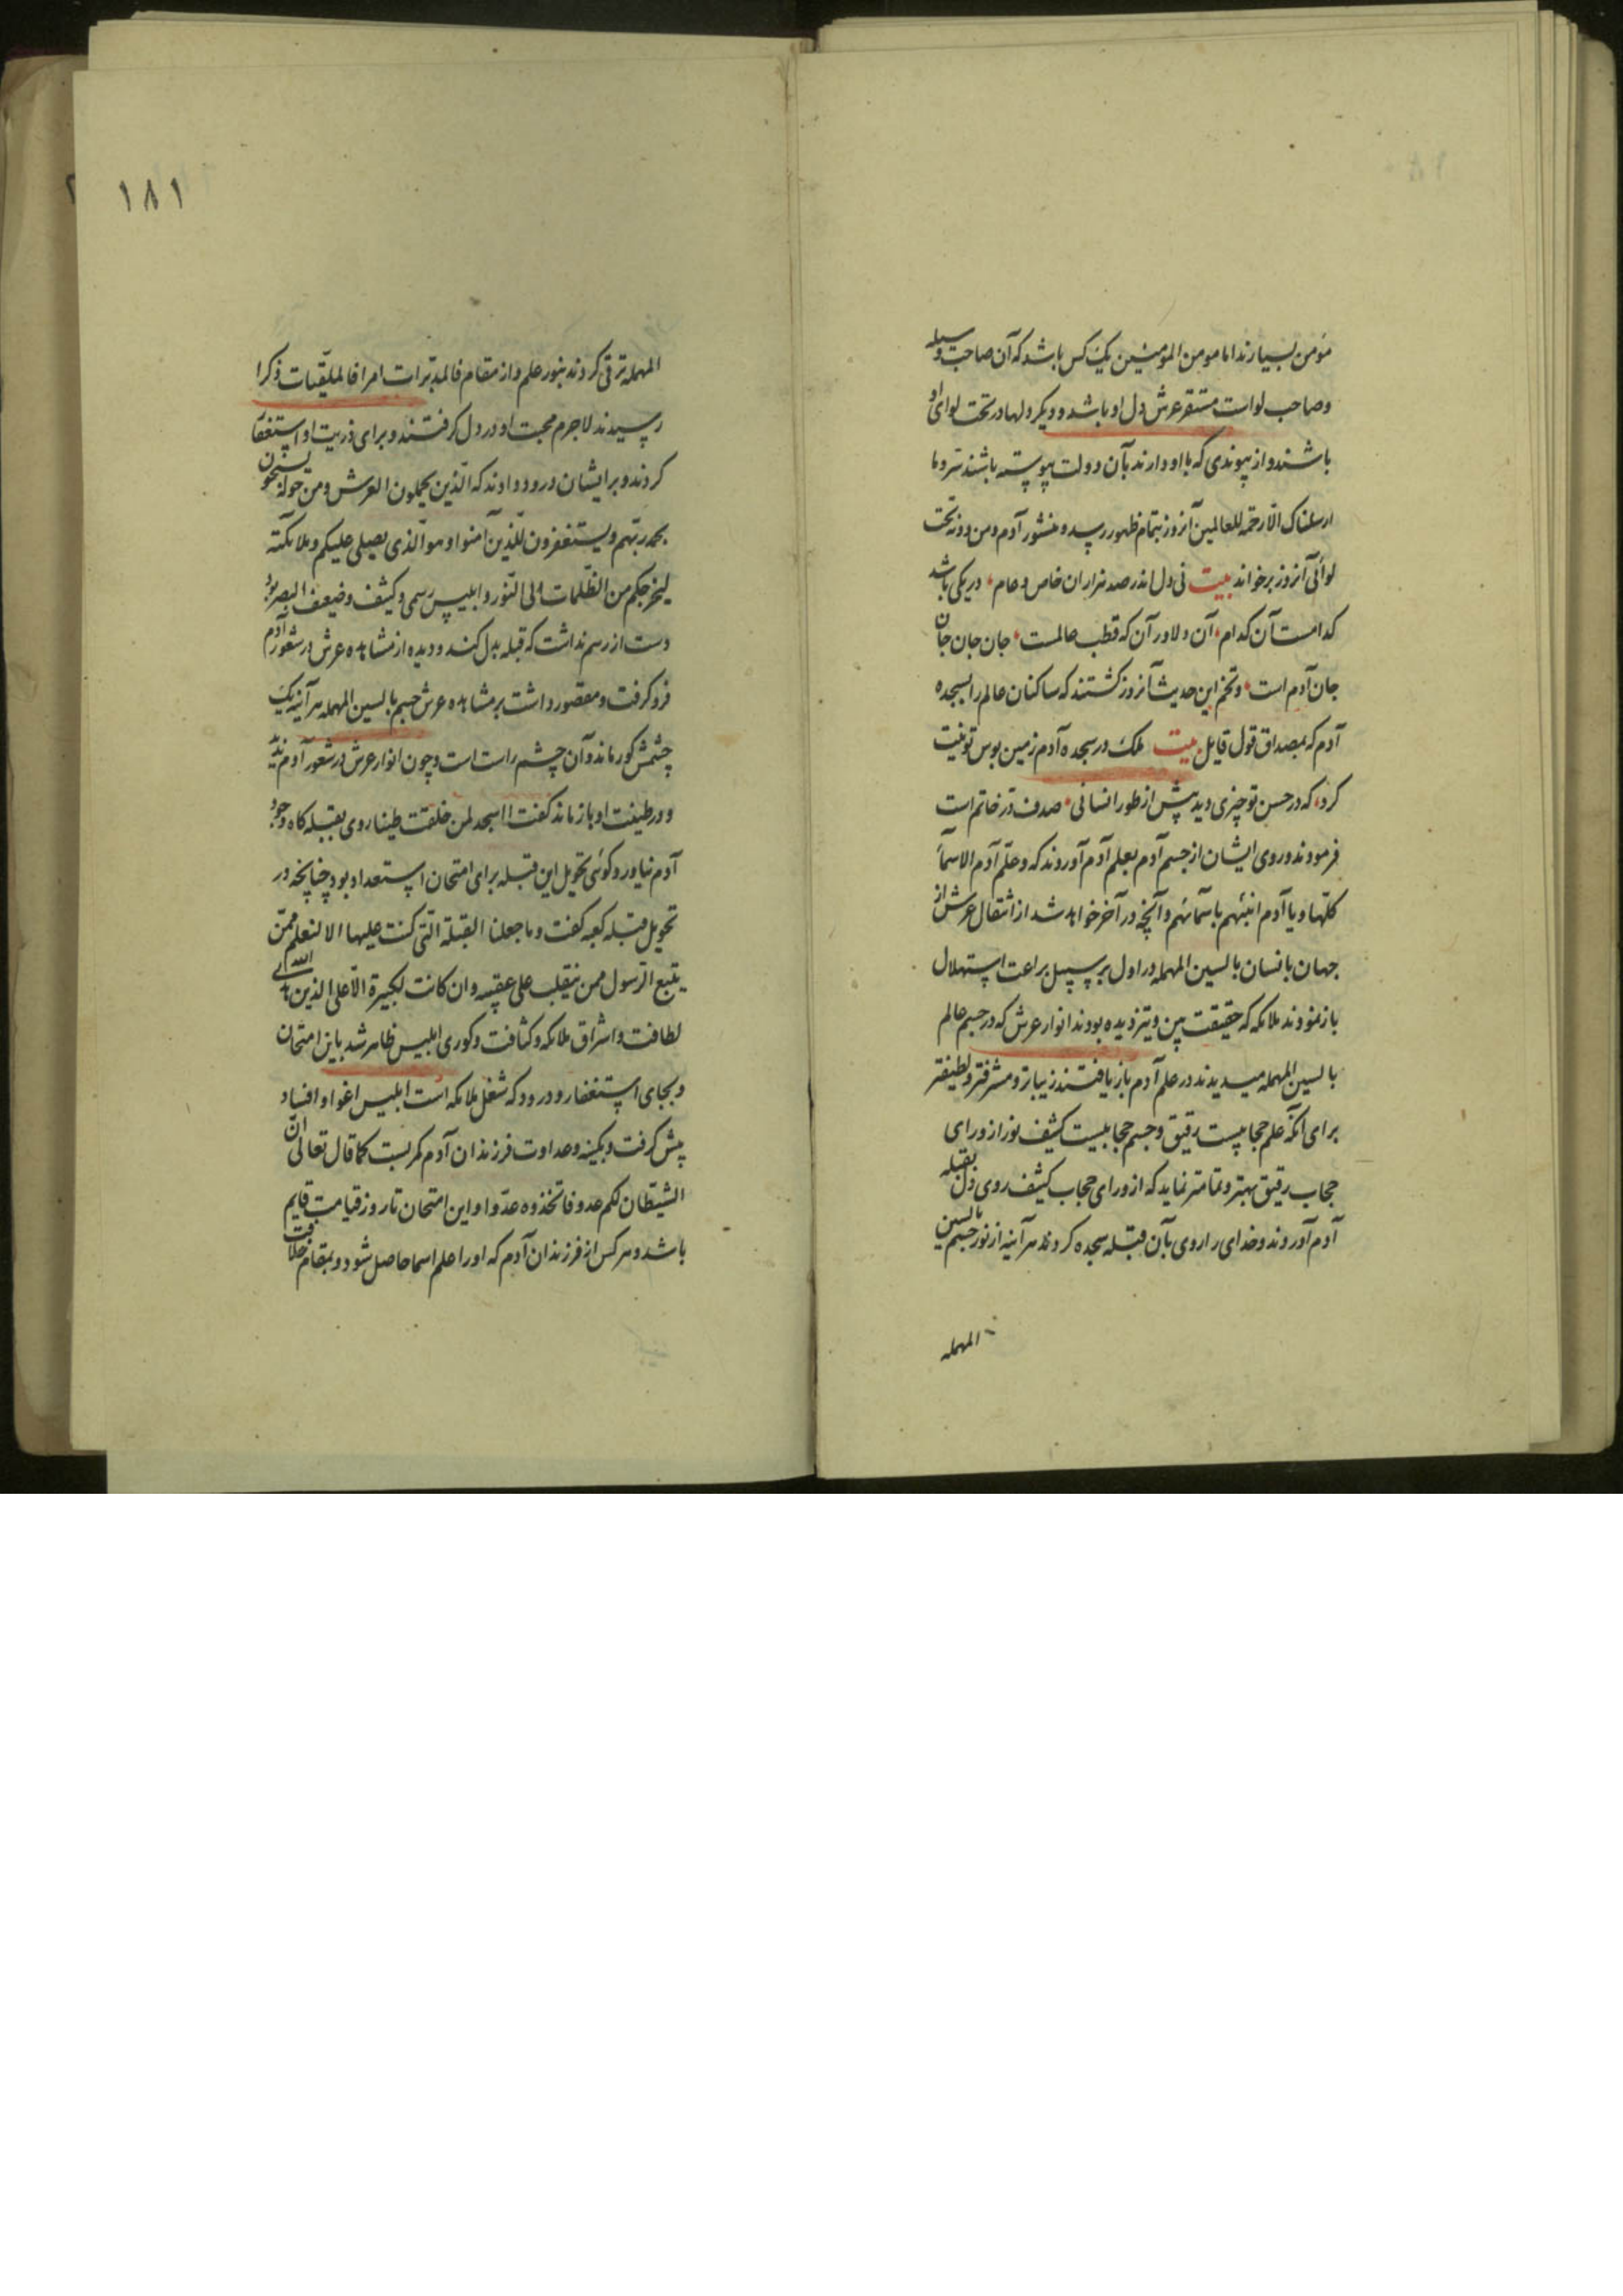 مؤمن بسیارند اما مومن المومنین یک کس باشد که آن صاحب وسیله
وصاحب لواست مستقر عرش دل او باشد و دیگر دلها در تحت لوای او
باشند و از پیوندی که با او دارند بآن دولت پیوسته باشند سر وما
ارسلناک الّا رحمة للعالمین آنروز بتمام ظهور رسد و منشور آدم ومن دونه تحت
لوائی آنروز برخواند بیت نی دل اندر صد هزاران خاص و عام، در یکی باشد
کدامست آن کدام، آن دلاور آن که قطب عالمست، جان جان جان
جان آدم است، و تخم این حدیث آنروز کشتند که ساکنان عالم را بسجده
آدم که بمصداق قول قایل بیت ملک در سجده آدم زمین بوس تو نیت
کرد، که در حسن تو چیزی دید پیش از طور انسانی، صدف در خاتم است
فرمودند و روی ایشان از جسم آدم بعلم آدم آوردند که وعلّم آدم الاسمآء
کلّها ویا آدم انبئهم باسمآئهم و آنچه در آخر خواهد شد از انتقال عرش از
جهان بانسان بالسین المهمله در اول بر سبیل براعت استهلال
بازنمودند ملائکه که حقیقت بین و تیز دیده بودند انوار عرش که در جسم عالم
بالسین المهمله میدیدند در علم آدم باز یافتند زیباتر و مشرفتر و لطیفتر
برای آنکه علم حجابیست رقیق و جسم حجابیست کثیف نور از ورای
حجاب رقیق بهتر و تمامتر نماید که از ورای حجاب کثیف روی دل بقبله
آدم آوردند و خدای را روی بآن قبله سجده کردند هر آینه از نور جسم بالسین
المهمله
۱۸۱
المهمله ترقی کردند بنور علم و از مقام فالمدبّرات امرا فالملقیات ذکرا
رسیدند لاجرم محبت او در دل گرفتند و برای ذریت او استغفار
کردند و بر ایشان درود دادند که الّذین یحملون العرش ومن حوله یسبحون
بحمد ربّهم ویستغفرون للّذین آمنوا وهو الّذی یصلی علیکم وملائکته
لیخرجکم من الظّلمات الی النّور و ابلیس رسمی و کثیف و ضعیف البصر بود
دست از رسم نداشت که قبله بدل کند و دیده از مشاهده عرش در شعور آدم
فرو گرفت و مقصور داشت بر مشاهده عرش جسم بالسین المهمله هر آینه یک
چشمش کور ماند و آن چشم راست است و چون انوار عرش در شعور آدم ندید
و در طینت او باز ماند گفت ااسجد لمن خلقت طینا روی بقبله کاه وجود
آدم نیاورد و گوئی تحویل این قبله برای امتحان استعداد بود چنانچه در
تحویل قبله کعبه گفت وما جعلنا القبلة الّتی کنت علیها الا لنعلم من
یتبع الرّسول ممن ینقلب علی عقبیه وان کانت لکبیرة الّا علی الذین هدی الله
لطافت و اشراق ملائکه و کثافت و کوری ابلیس ظاهر شد باین امتحان
و بجای استغفار و درود که شغل ملائکه است ابلیس اغوا و افساد
پیش گرفت و بکینه و عداوت فرزندان آدم کمر بست کما قال تعالی انّ
الشیطان لکم عدو فاتخذوه عدّوا و این امتحان تا روز قیامت قایم
باشد و هر کس از فرزندان آدم که او را علم اسما حاصل شود و بمقام خلافت